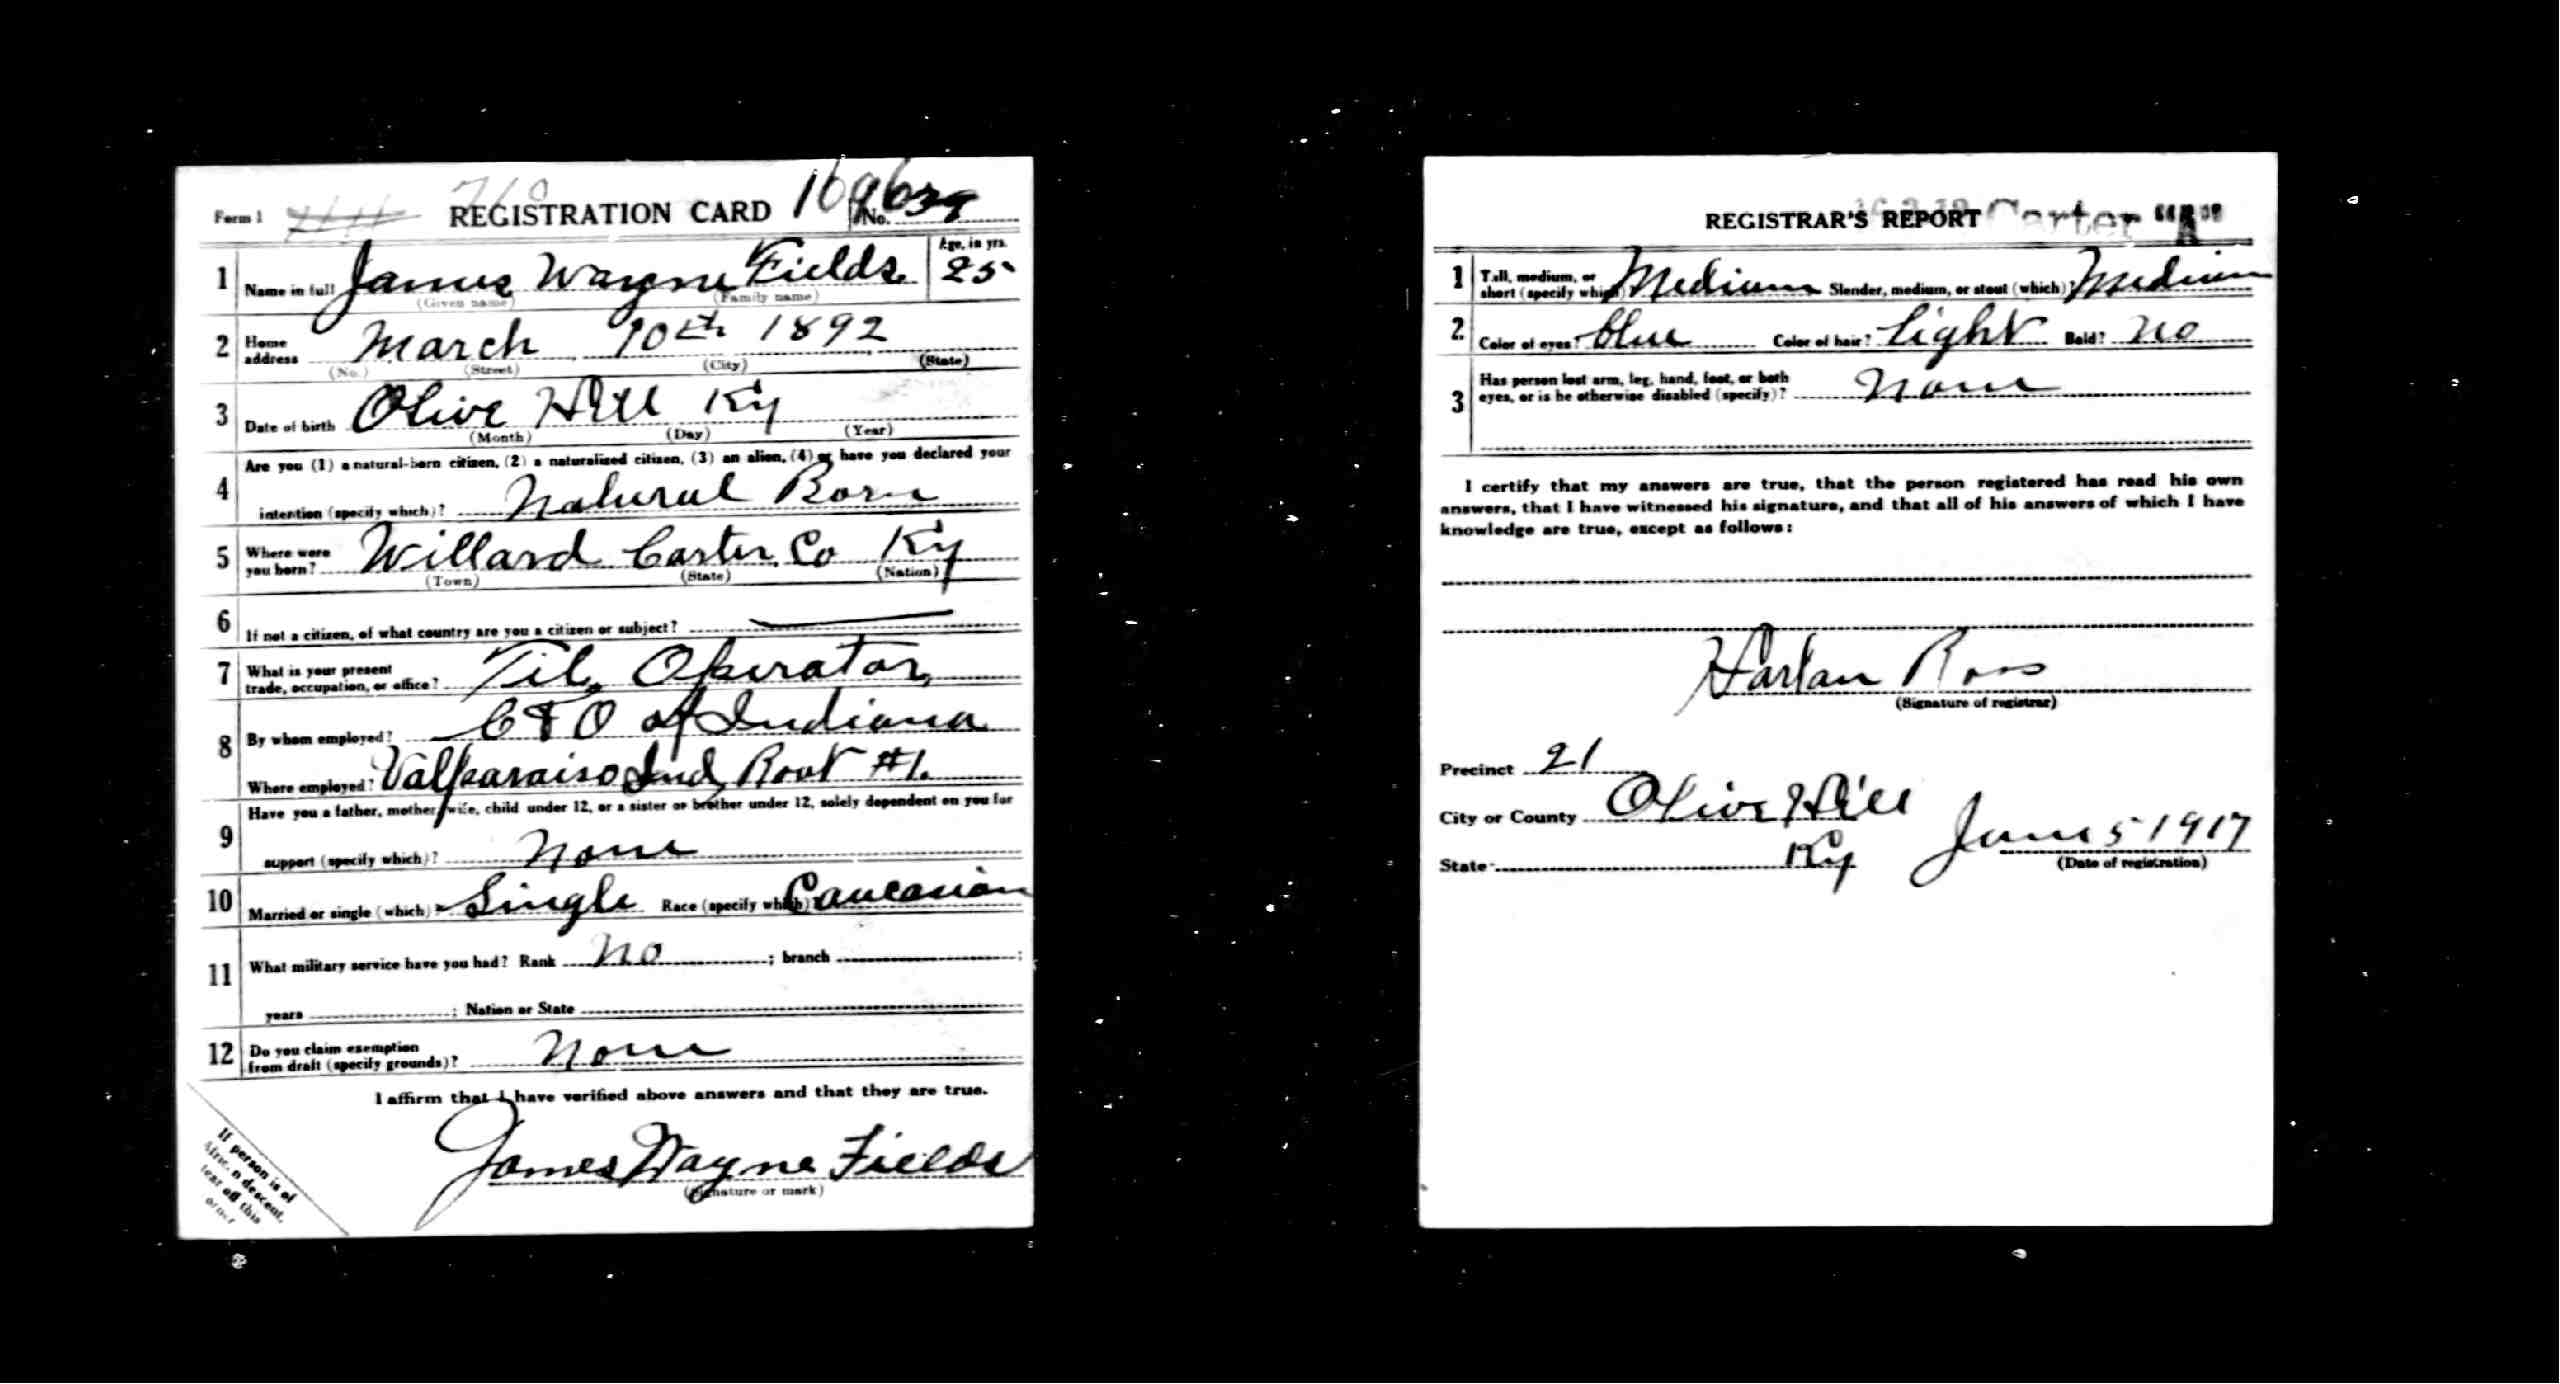 Form 1 REGISTRATION CARD No. 39
1 Name in full James Wayne Fields Age, in yrs. 25
(Given name) (Family name)
2 Home address March 10th 1892
(No.) (Street) (City) (State)
3 Date of birth Olive Hill Ky
(Month) (Day) (Year)
4 Are you (1) a natural-born citizen, (2) a naturalized citizen, (3) an alien, (4) or have you declared your
intention (specify which)? Natural Born
5 Where were you born? Willard Carter Co Ky
(Town) (State) (Nation)
6 If not a citizen, of what country are you a citizen or subject?
7 What is your present
trade, occupation, or office? Tel. Operator
8 By whom employed? C & O of Indiana
Where employed? Valparaiso Ind Rout #1.
9 Have you a father, mother, wife, child under 12, or a sister or brother under 12, solely dependent on you for
support (specify which)? None
10 Married or single (which)? Single Race (specify which)? Caucasian
11 What military service have you had? Rank no ; branch ;
years ; Nation or State
12 Do you claim exemption
from draft (specify grounds)? None
I affirm that I have verified above answers and that they are true.
James Wayne Fields
(Signature or mark)
If person is of
descent,
tear off this
corner
REGISTRAR'S REPORT Carter
1 Tall, medium, or
short (specify which)? Medium Slender, medium, or stout (which)? Medium
2. Color of eyes? blue Color of hair? Light Bald? no
3 Has person lost arm, leg, hand, foot, or both
eyes, or is he otherwise disabled (specify)? None
I certify that my answers are true, that the person registered has read his own
answers, that I have witnessed his signature, and that all of his answers of which I have
knowledge are true, except as follows:
Harlan Ross
(Signature of registrar)
Precinct 21
City or County Olive Hill
State Ky June 5 1917
(Date of registration)